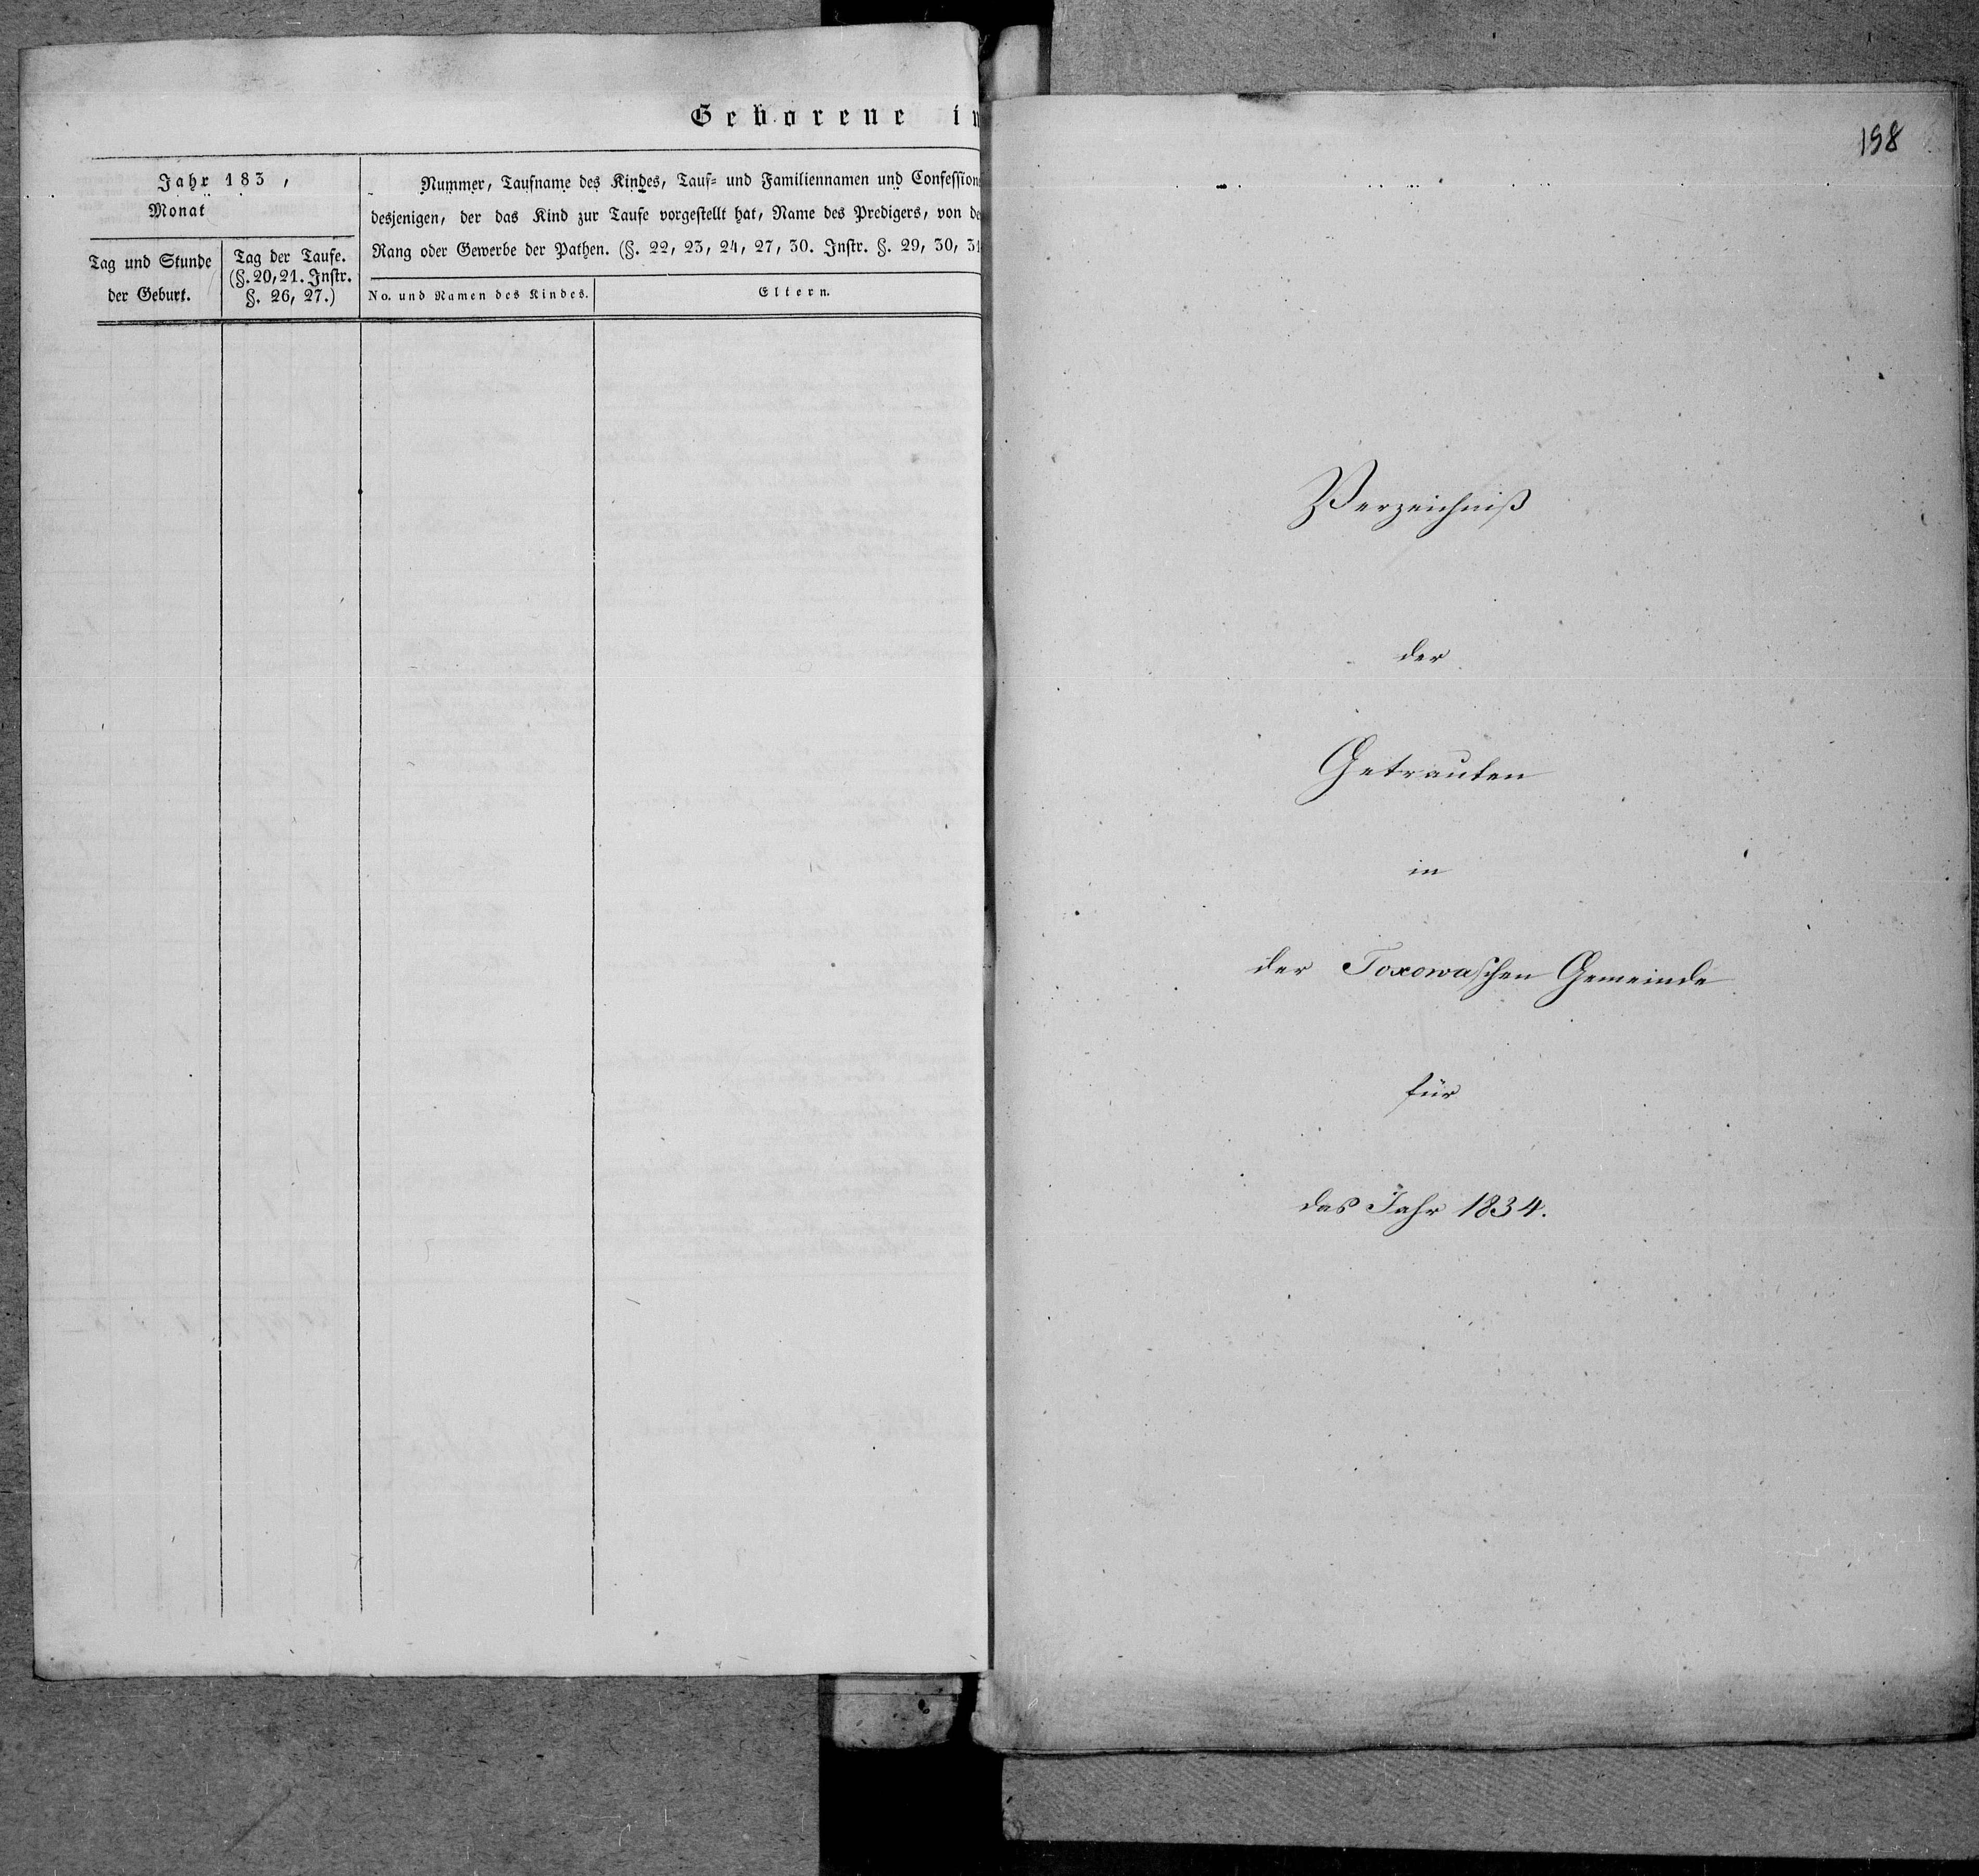 Geborene in
Jahr 183 ,
Monat
Tag und Stunde
der Geburt.
Tag der Taufe.
(§. 20, 21. Instr.
§. 26, 27.)
Nummer, Taufname des Kindes, Tauf= und Familiennamen und Confession
desjenigen, der das Kind zur Taufe vorgestellt hat, Name des Predigers, von de
Rang oder Gewerbe der Pathen. (§. 22, 23, 24, 27, 30. Instr. §. 29, 30, 31
No. und Namen des Kindes.
Eltern.
198
Verzeichniß
der
Getrauten
in
der Toxowaschen Gemeinde
für
das Jahr 1834.